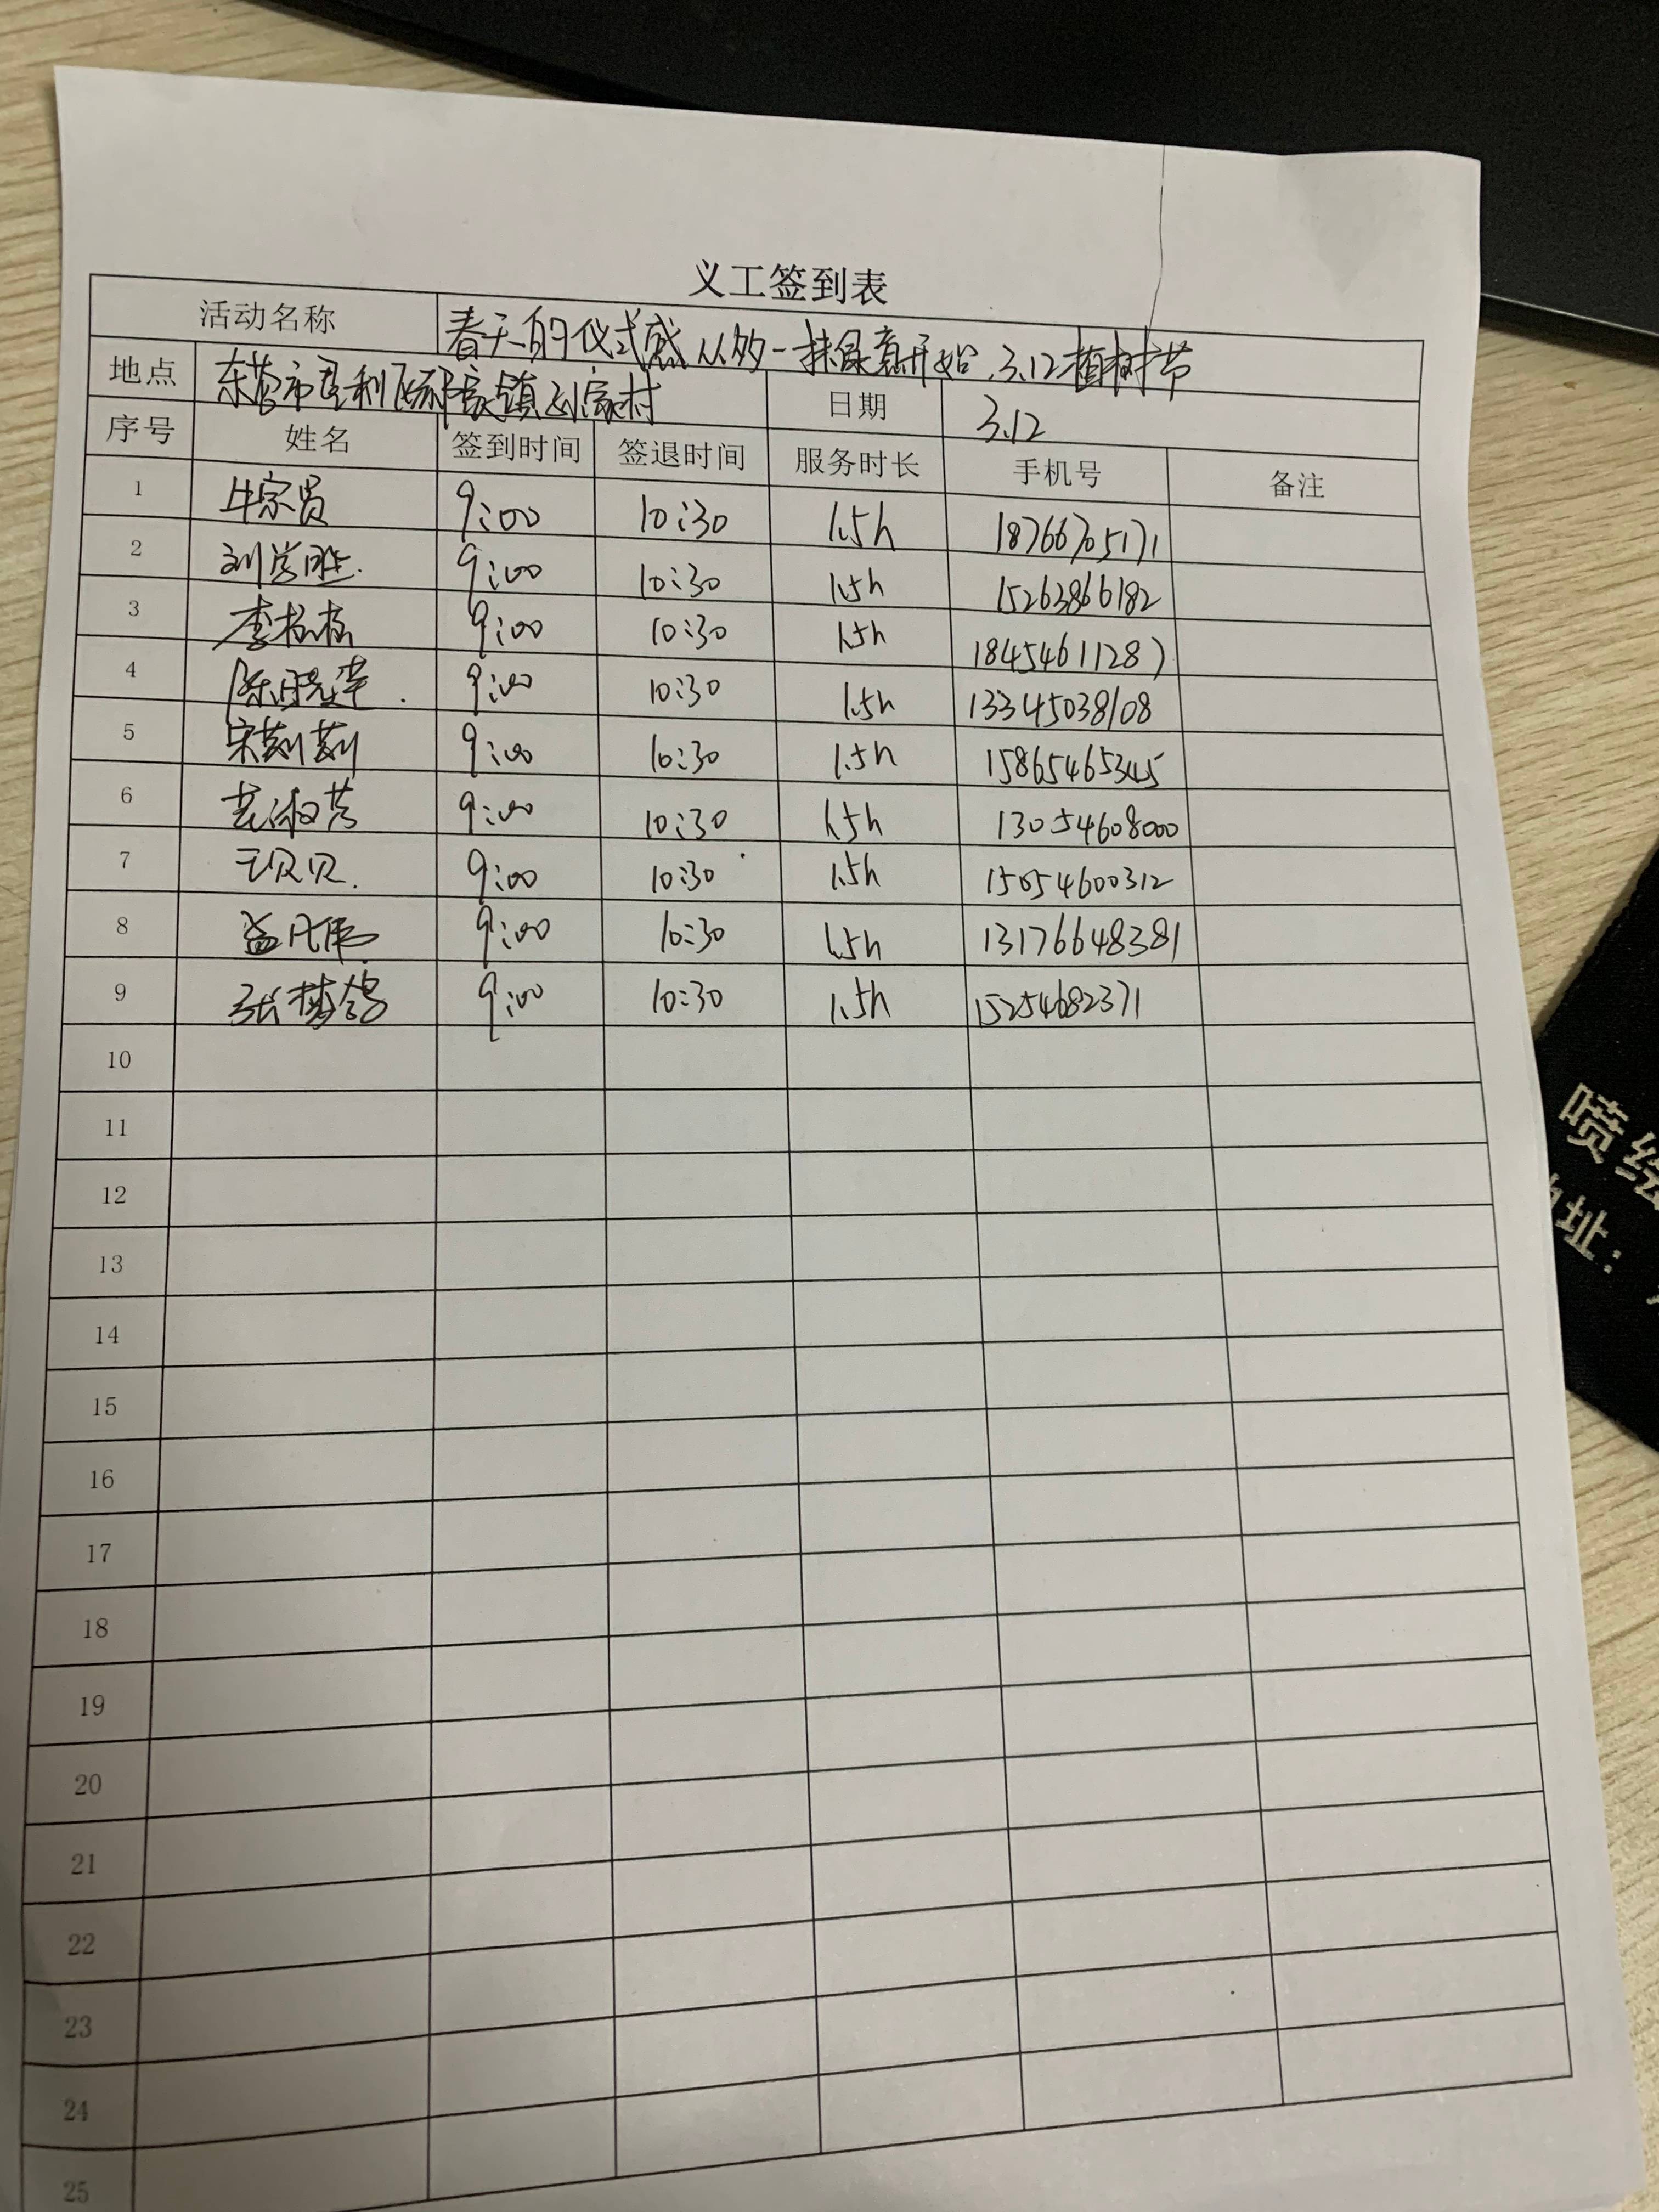 义工签到表
活动名称 春天的仪式感从的一抹绿意开始.3.12植树节
地点 东营市垦利区郝家镇刘家村 日期 3.12
序号 姓名 签到时间 签退时间 服务时长 手机号 备注
1 牛宗贤 9:00 10:30 1.5h 18766705171
2 刘学胜. 9:00 10:30 1.5h 15263866182
3 李栋栋 9:00 10:30 1.5h 18454611287
4 陈晓莲. 9:00 10:30 1.5h 13345038108
5 宋菊菊 9:00 10:30 1.5h 15865465345
6 淑芳 9:00 10:30 1.5h 13054608000
7 王贝贝. 9:00 10:30 1.5h 15054600312
8 盖 9:00 10:30 1.5h 13176648381
9 张梦鸽 9:00 10:30 1.5h 15254682371
10
11
12
13
14
15
16
17
18
19
20
21
22
23
24
25
喷绘
址: